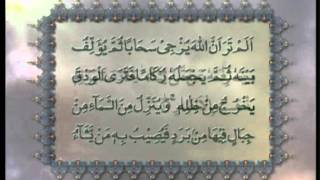 اَلَمْ تَرَ اَنَّ اللّٰهَ يُزْجِىْ سَحَابًا ثُمَّ يُؤَلِّفُ
بَيْنَهٗ ثُمَّ يَجْعَلُهٗ رُكَامًا فَتَرَى الْوَدْقَ
يَخْرُجُ مِنْ خِلٰلِهٖ ۚ وَيُنَزِّلُ مِنَ السَّمَآءِ مِنْ
جِبَالٍ فِيْهَا مِنْۢ بَرَدٍ فَيُصِيْبُ بِهٖ مَنْ يَّشَآءُ